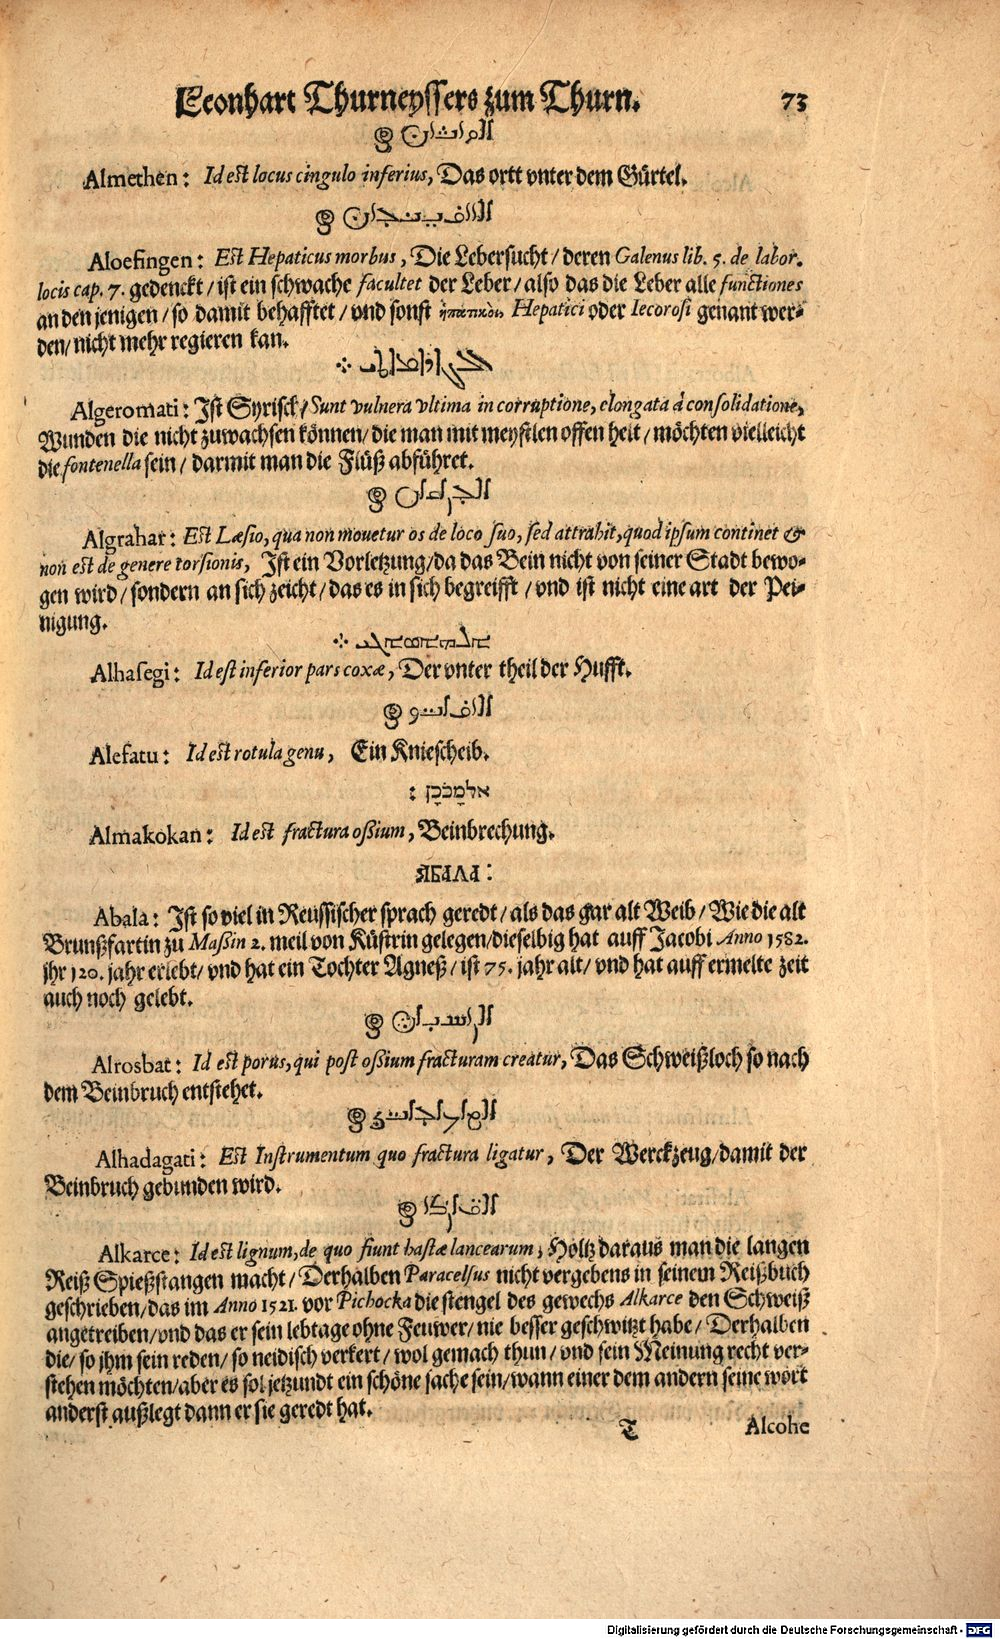 Leonhart Thurneyssers zum Thurn. 73
Almethen: Id est locus cingulo inferius, Das ortt vnter dem Gürtel.
Aloefingen: Est Hepaticus morbus, Die Lebersucht/deren Galenus lib. 5. de labor.
locis cap. 7. gedenckt/ist ein schwache facultet der Leber/also das die Leber alle functiones
an den jenigen/so damit behafftet/vnd sonst Hepatici oder Iecorosi genant wer-
den/nicht mehr regieren kan.
Algeromati: Ist Syrisch/Sunt vulnera vltima in corruptione, elongata à consolidatione,
Wunden die nicht zuwachsen können/die man mit meystlen offen helt/möchten vielleicht
die fontenella sein/darmit man die Flüß abführet.
Algrahar: Est Læsio, qua non mouetur os de loco suo, sed attrahit, quod ipsum continet &
non est de genere torsionis, Ist ein Vorletzung/da das Bein nicht von seiner Stadt bewo-
gen wird/sondern an sich zeicht/das es in sich begreifft/vnd ist nicht eine art der Pei-
nigung.
Alhasegi: Id est inferior pars coxæ, Der vnter theil der Hufft.
Alefatu: Id est rotula genu, Ein Kniescheib.
אלמָכֹכָן :
Almakokan: Id est fractura oßium, Beinbrechung.
ЯБАЛА:
Abala: Ist so viel in Reussischer sprach geredt/als das gar alt Weib/Wie die alt
Brunßfartin zu Maßin 2. meil von Küstrin gelegen/dieselbig hat auff Jacobi Anno 1582.
jhr 120. jahr erlebt/vnd hat ein Tochter Agneß/ist 75. jahr alt/vnd hat auff ermelte zeit
auch noch gelebt.
Alrosbat: Id est porus, qui post oßium fracturam creatur, Das Schweißloch so nach
dem Beinbruch entstehet.
Alhadagati: Est Instrumentum quo fractura ligatur, Der Werckzeug/damit der
Beinbruch gebunden wird.
Alkarce: Id est lignum, de quo fiunt hastæ lancearum, Holtz daraus man die langen
Reiß Spießstangen macht/Derhalben Paracelsus nicht vergebens in seinem Reißbuch
geschrieben/das im Anno 1521. vor Pichocka die stengel des gewechs Alkarce den Schweiß
angetreiben/vnd das er sein lebtage ohne Feuwer/nie besser geschwitzt habe/Derhalben
die/so jhm sein reden/so neidisch verkert/wol gemach thun/vnd sein Meinung recht ver-
stehen möchten/aber es sol jetzundt ein schöne sache sein/wann einer dem andern seine wort
anderst außlegt dann er sie geredt hat.
T Alcohe
Digitalisierung gefördert durch die Deutsche Forschungsgemeinschaft - DFG